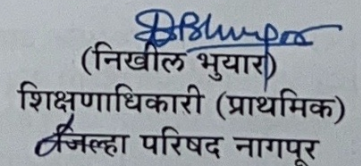 (निखील भुयार)
शिक्षणाधिकारी (प्राथमिक)
जिल्हा परिषद नागपूर